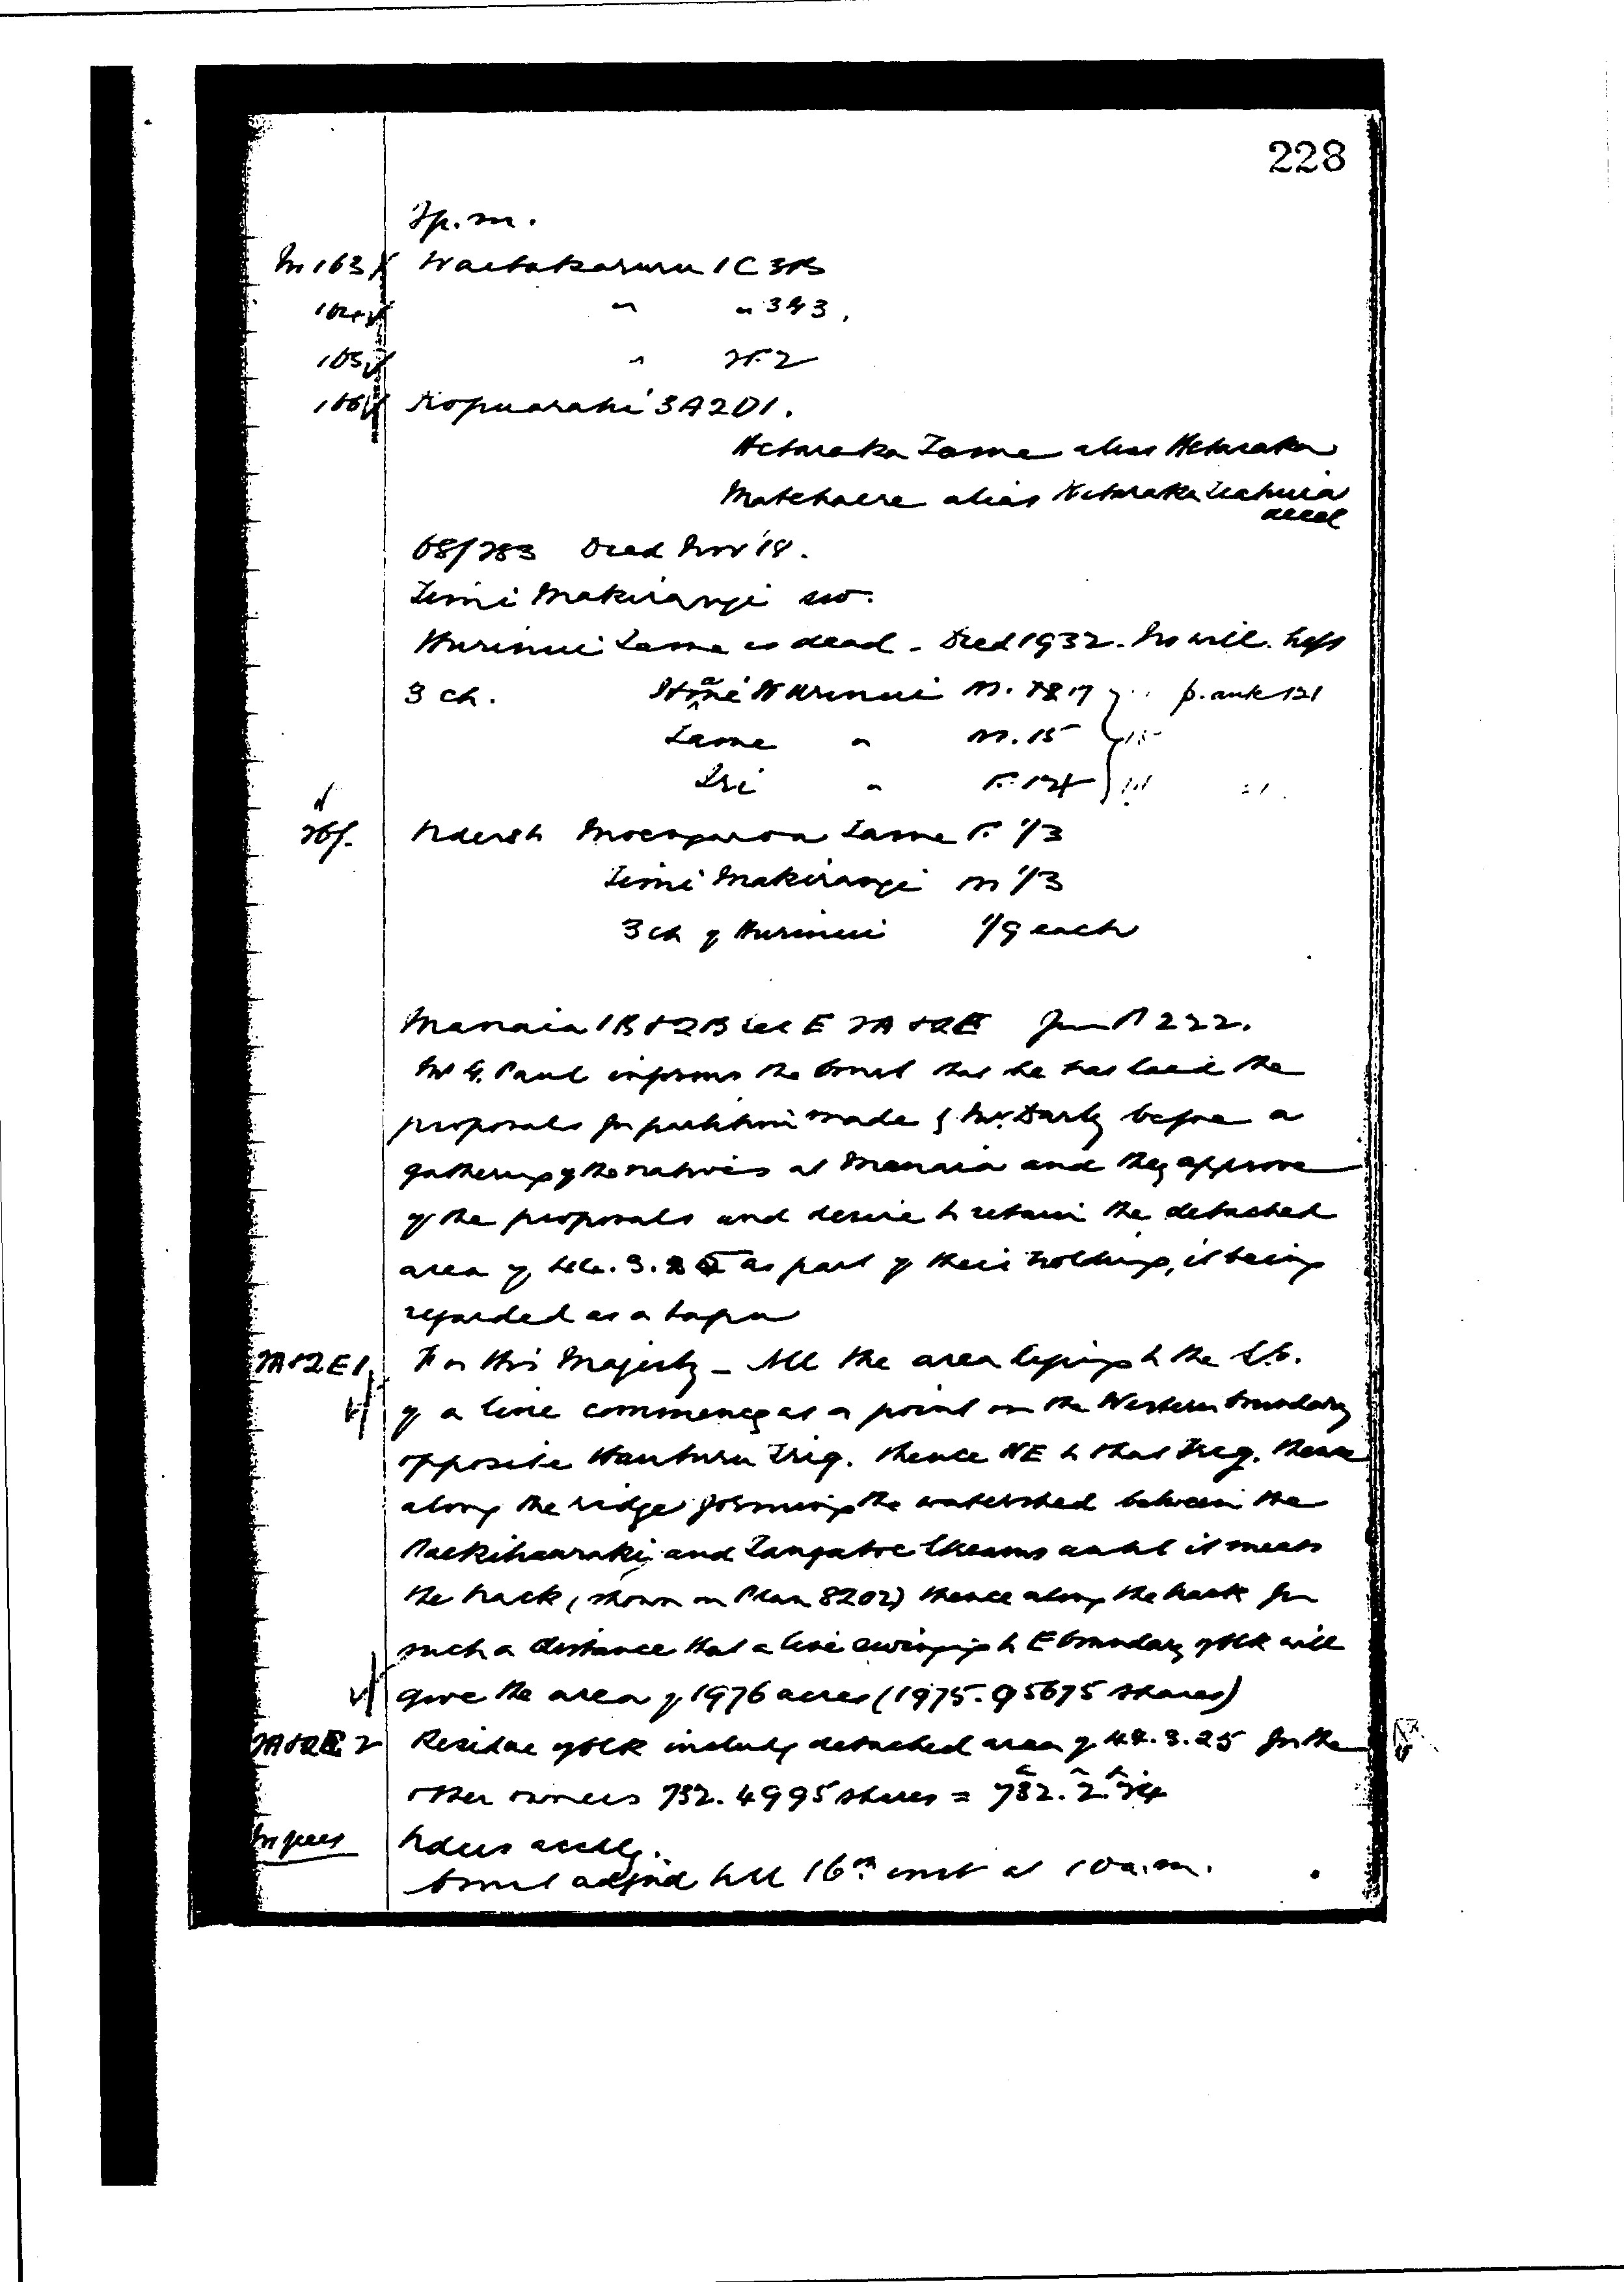 228
2 p.m.
163 Waitakaruru 1C 3B
" " 3G3.
165 " 2
166 Kopuarahi 3A2D1.
Hetaraka Tame alias Hetaraka
alias Hetaraka
decd
68/283 Died Nov '18.
Timi Makirangi sw.
Hurinui Tame is dead. Died 1932. No will. Left
3 ch. Hurinui m. 17 p. ante 121
Tame " m. 15
Iri " F. 14
Tame F. 1/3
Timi Makirangi m 1/3
3 ch of Hurinui 1/9 each
Manaia 1B & 2B Sec E 2A & 2E from P 222.
Mr G. Paul informs the Court that he has laid the
proposals for partition made by Mr. Darby before a
gathering of the natives at Manaia and they approve
of the proposals and desire to retain the detached
area of as part of their holdings, it being
regarded as a tapu
2A & 2E 1 For His Majesty - All the area lying to the
of a line commencg at a point on the Western boundary
opposite Hauturu Trig. thence NE to that Trig. thence
along the ridge forming the watershed between the
and Tangatoe Streams until it meets
the track, (shown on Plan 8202) thence along the track for
such a distance that a line to E boundary of blk will
give the area of 1976 acres (1975.95675 shares)
2A & 2E 2 Residue of blk includg detached area of 3.25 for the
other owners 732.4995 shares = 732.2.
No fees Orders accdly.
Court adjnd till 16th inst at 10 a.m.